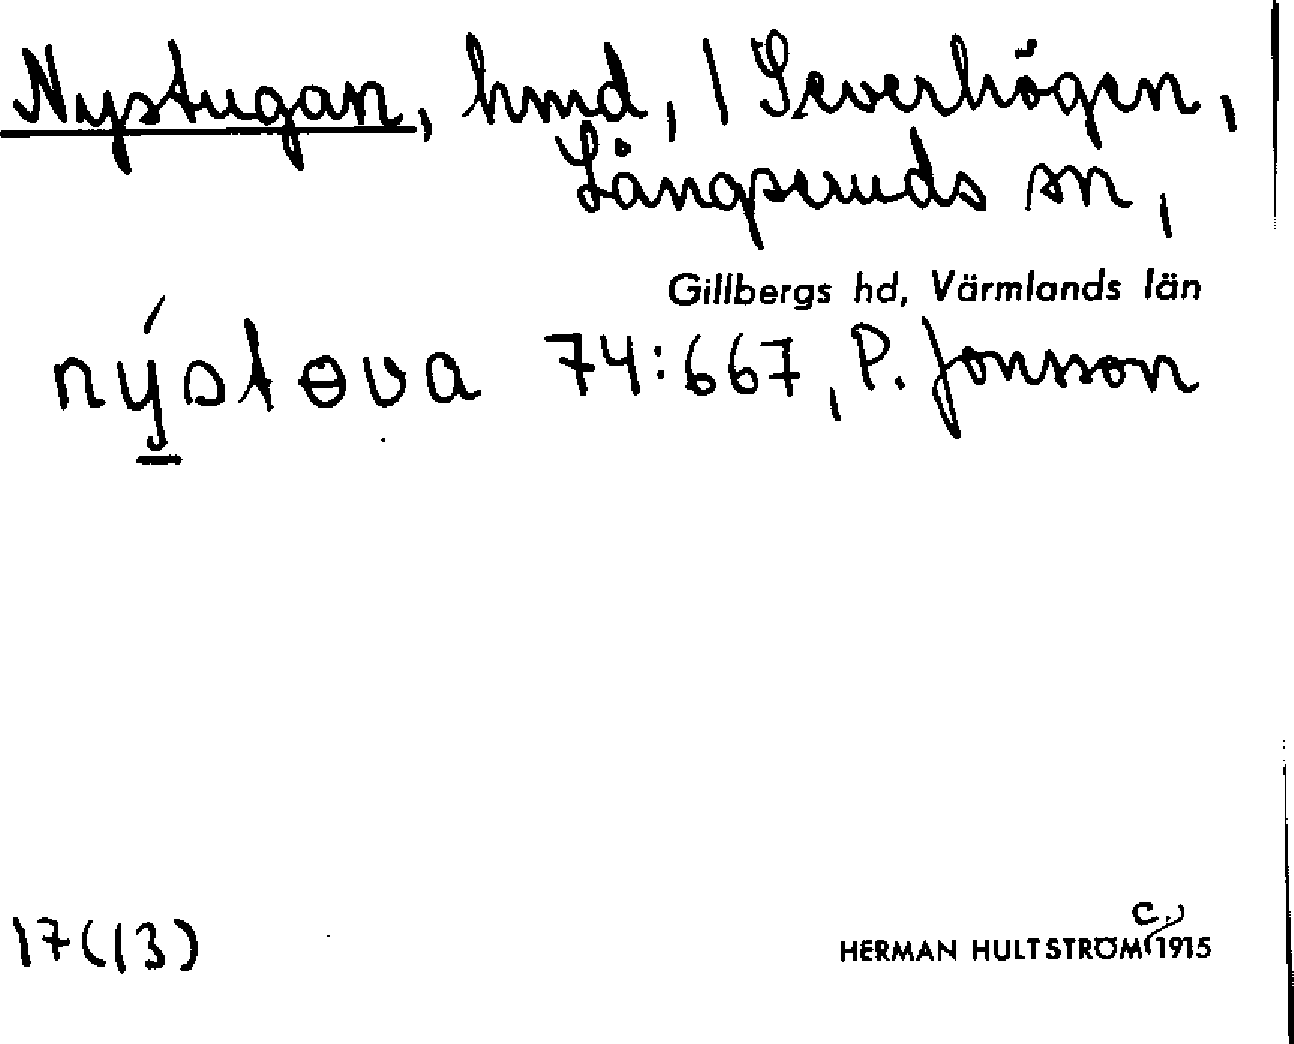 Nystugan, hmd, / Severhögen,
Långseruds sn,
Gillbergs hd, Värmlands län
nýstɵva 74:667, P. Jonsson
17(13)
HERMAN HULTSTRÖM c. 1915